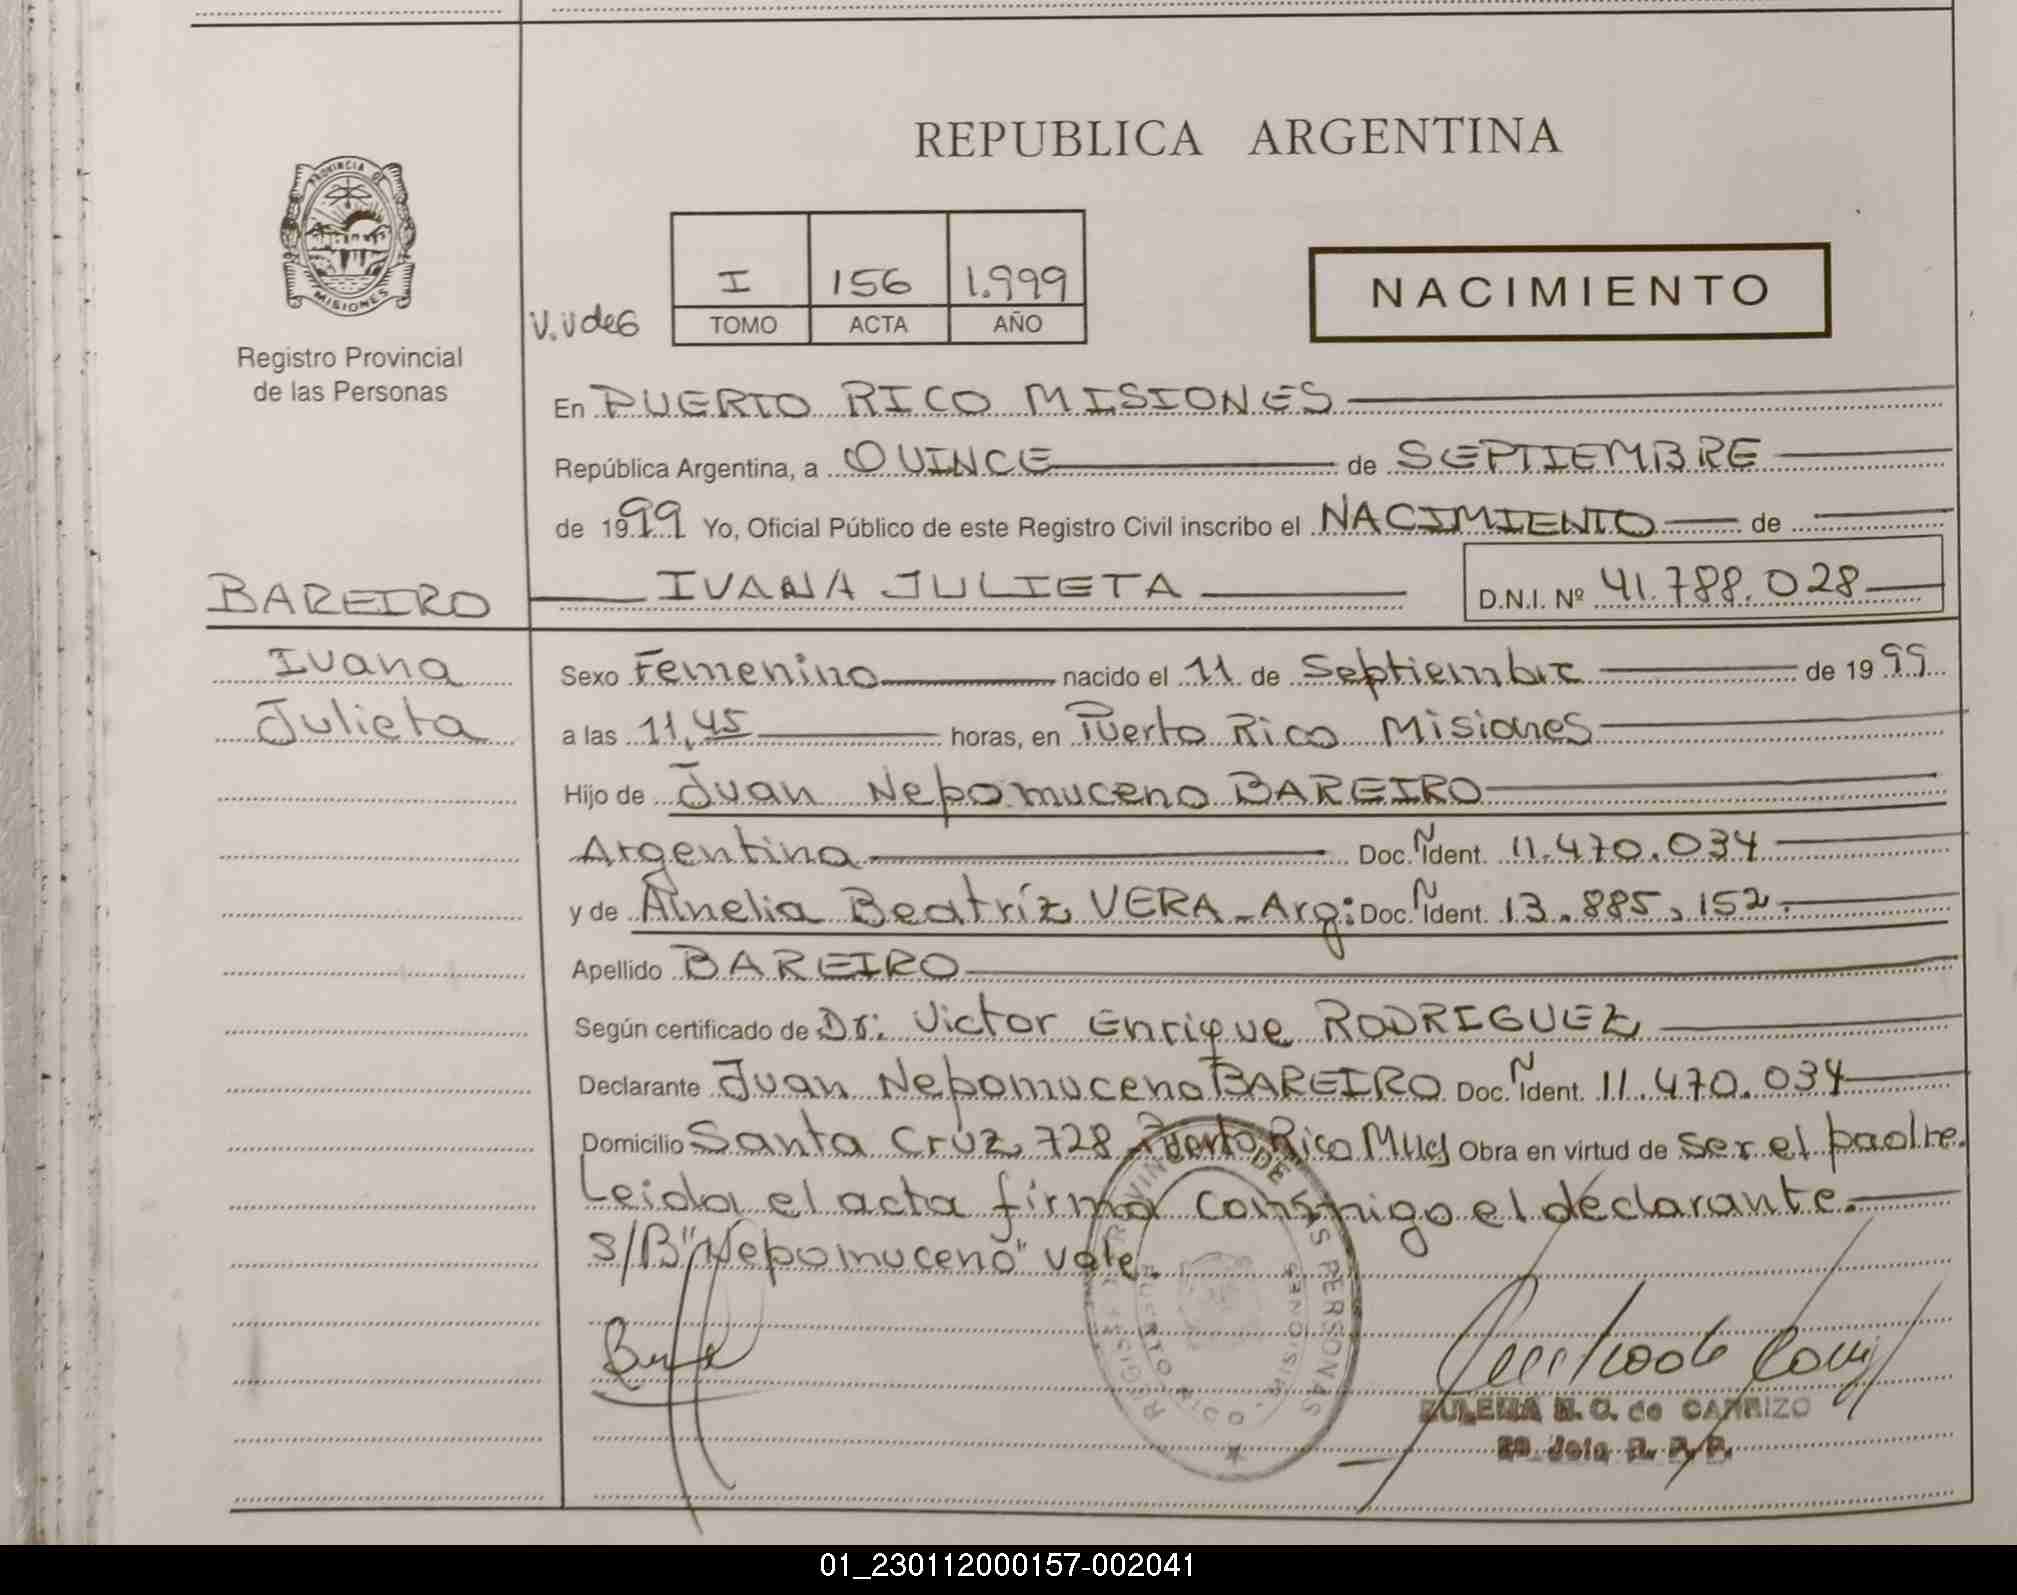 REPUBLICA ARGENTINA
PROVINCIA DE
MISIONES
Registro Provincial
de las Personas
V.V de G
I 156 1.999
TOMO ACTA AÑO
NACIMIENTO
En PUERTO RICO MISIONES
República Argentina, a QUINCE de SEPTIEMBRE
de 1999 Yo, Oficial Público de este Registro Civil inscribo el NACIMIENTO de
BAREIRO IVANA JULIETA D.N.I. Nº 41.788.028
Ivana
Julieta
Sexo Femenino nacido el 11 de Septiembre de 1999
a las 11,45 horas, en Puerto Rico Misiones
Hijo de Juan Nepomuceno BAREIRO
Argentina Doc. Ñ Ident. 11.470.034
y de Amelia Beatríz VERA - Arg: Doc. Ñ Ident. 13.885,152.
Apellido BAREIRO
Según certificado de Dr: Victor Enrique RODRIGUEZ
Declarante Juan Nepomuceno BAREIRO Doc. Ñ Ident. 11.470.034
Domicilio Santa Cruz 728 Puerto Rico Obra en virtud de ser el padre.
Leida el acta firma conmigo el declarante.
S/B "Nepomuceno" vale.
REGISTRO PROVINCIAL DE LAS PERSONAS
PUERTO RICO - MISIONES
de CARRIZO
01_230112000157-002041